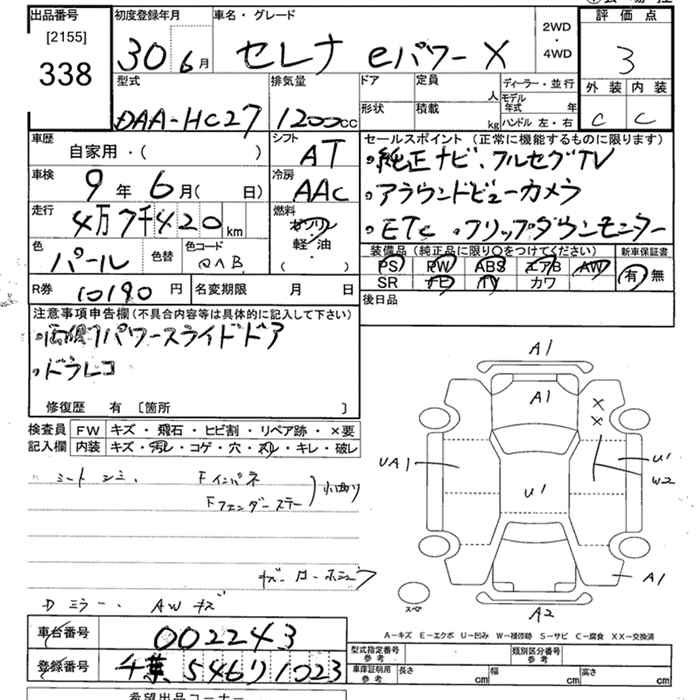 出品番号
[2155]
338
初度登録年月
30 6月
車名・グレード
セレナ eパワー X
2WD
・
4WD
評価点
3
外装 内装
C C
型式
DAA-HC27
排気量
1200cc
ドア
定員
人
形状
積載
kg
ディーラー・並行
モデル
年式 年
ハンドル 左・右
車歴
自家用・( )
シフト
AT
セールスポイント (正常に機能するものに限ります)
・純正ナビ、フルセグTV
・アラウンドビューカメラ
・ETC ・フリップダウンモニター
車検
9年 6月( 日)
冷房
AAC
走行
4万7千420km
燃料
ガソリン
軽・油
( ・ )
色
パール
色替
色コード
QAB
装備品 (純正品に限り○をつけてください)
PS PW ABS エアB AW
SR ナビ TV カワ
新車保証書
有 無
R券 10190円
名変期限 月 日
後日品
注意事項申告欄 (不具合内容等は具体的に記入して下さい)
・両側パワースライドドア
・ドラレコ
修復歴 有 〔箇所 〕
検査員
記入欄
FW キズ・飛石・ヒビ割・リペア跡・×要
内装 キズ・汚れ・コゲ・穴・スレ・キレ・破レ
シートシミ
Fインパネ
Fフェンダーステー
小曲り
Dミラー、AWキズ
A1
A1
XX
UA1
U1
U1
W2
A1
A2
スペア
A-キズ E-エクボ U-凹み W-補修跡 S-サビ C-腐食 XX-交換済
車台番号 002243
登録番号 千葉 546 り 1023
型式指定番号
参考
類別区分番号
参考
車庫証明用
参考
長さ cm 幅 cm 高さ cm
希望出品コーナー